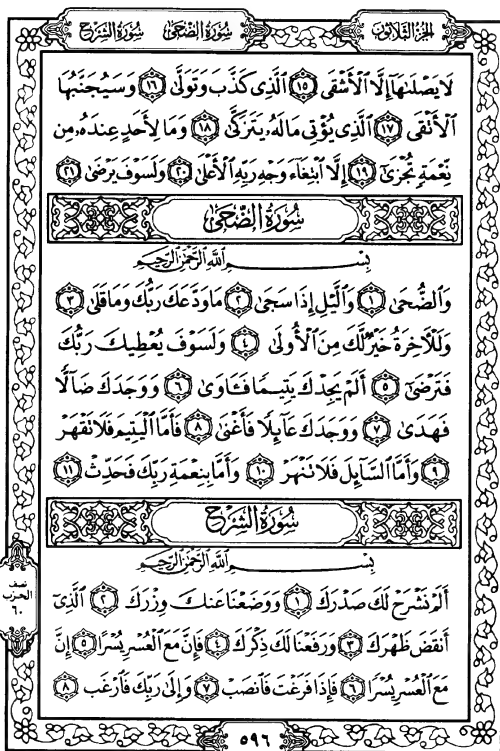 الجزء الثلاثون سورة الضحى سورة الشرح
لَا يَصْلَىٰهَآ إِلَّا ٱلْأَشْقَى ١٥ ٱلَّذِى كَذَّبَ وَتَوَلَّىٰ ١٦ وَسَيُجَنَّبُهَا
ٱلْأَتْقَى ١٧ ٱلَّذِى يُؤْتِى مَالَهُۥ يَتَزَكَّىٰ ١٨ وَمَا لِأَحَدٍ عِندَهُۥ مِن
نِّعْمَةٍ تُجْزَىٰٓ ١٩ إِلَّا ٱبْتِغَآءَ وَجْهِ رَبِّهِ ٱلْأَعْلَىٰ ٢٠ وَلَسَوْفَ يَرْضَىٰ ٢١
سُورَةُ الضُّحَىٰ
بِسْمِ ٱللَّهِ ٱلرَّحْمَٰنِ ٱلرَّحِيمِ
وَٱلضُّحَىٰ ١ وَٱلَّيْلِ إِذَا سَجَىٰ ٢ مَا وَدَّعَكَ رَبُّكَ وَمَا قَلَىٰ ٣
وَلَلْـَٔاخِرَةُ خَيْرٌ لَّكَ مِنَ ٱلْأُولَىٰ ٤ وَلَسَوْفَ يُعْطِيكَ رَبُّكَ
فَتَرْضَىٰٓ ٥ أَلَمْ يَجِدْكَ يَتِيمًا فَـَٔاوَىٰ ٦ وَوَجَدَكَ ضَآلًّا
فَهَدَىٰ ٧ وَوَجَدَكَ عَآئِلًا فَأَغْنَىٰ ٨ فَأَمَّا ٱلْيَتِيمَ فَلَا تَقْهَرْ
٩ وَأَمَّا ٱلسَّآئِلَ فَلَا تَنْهَرْ ١٠ وَأَمَّا بِنِعْمَةِ رَبِّكَ فَحَدِّثْ ١١
سُورَةُ الشَّرْحِ
بِسْمِ ٱللَّهِ ٱلرَّحْمَٰنِ ٱلرَّحِيمِ
أَلَمْ نَشْرَحْ لَكَ صَدْرَكَ ١ وَوَضَعْنَا عَنكَ وِزْرَكَ ٢ ٱلَّذِىٓ
أَنقَضَ ظَهْرَكَ ٣ وَرَفَعْنَا لَكَ ذِكْرَكَ ٤ فَإِنَّ مَعَ ٱلْعُسْرِ يُسْرًا ٥ إِنَّ
مَعَ ٱلْعُسْرِ يُسْرًا ٦ فَإِذَا فَرَغْتَ فَٱنصَبْ ٧ وَإِلَىٰ رَبِّكَ فَٱرْغَب ٨
نصف
الحزب
٦٠
٥٩٦